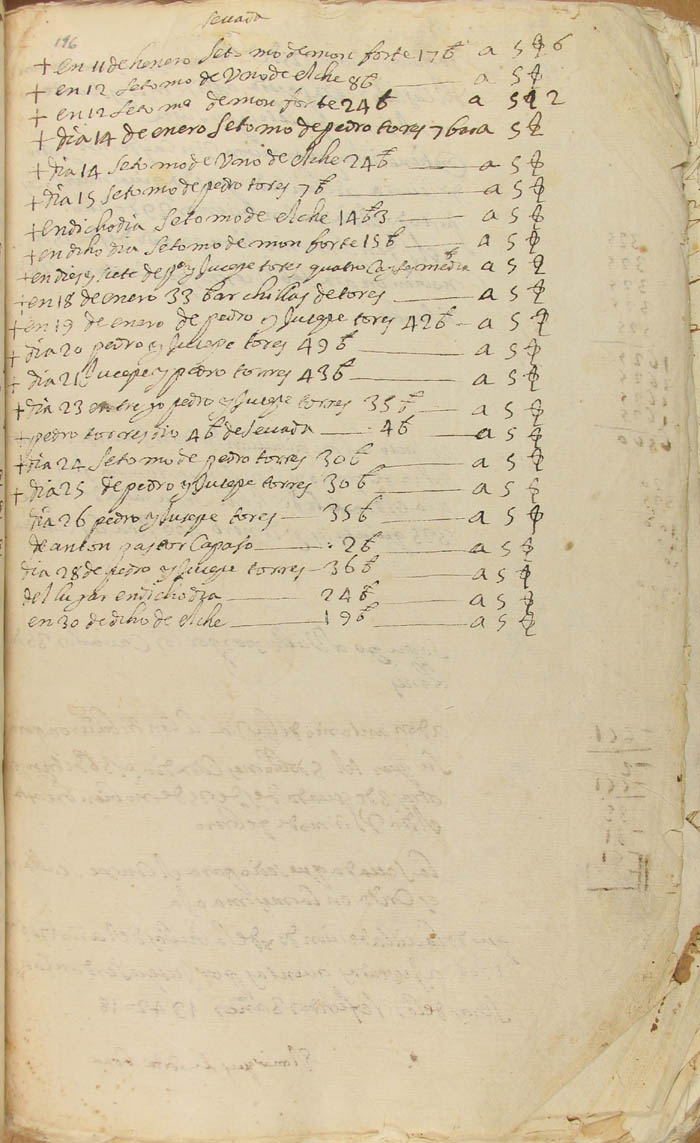 sevada
196
+ en 11 de henero se tomo de mon forte 17 b a 5 $ 6
+ en 12 se tomo de Uno de elche 8 b a 5 $
+ en 12 se toma de mon forte 24 b a 5 $ 2
+ dia 14 de enero se tomo de pedro tores 7 bar a 5 $
+ dia 14 se tomo de Uno de elche 24 b a 5 $
+ dia 15 se tomo de pedro tores 7 b a 5 $
+ en dicho dia se tomo de elche 14 b 3 a 5 $
+ en diho dia se tomo de mon forte 15 b a 5 $
+ en dies y siete de po y Jusepe tores quatro y media a 5 $
+ en 18 de enero 33 barchillas de tores a 5 $
+ en 19 de enero de pedro y Jusepe tores 42 b a 5 $
+ dia 20 pedro y Jusepe tores 49 b a 5 $
+ dia 21 Jusepe y pedro torres 43 b a 5 $
+ dia 23 entrego pedro y Jusepe torres 35 b a 5 $
+ pedro torres dio 4 b de sevada 4 b a 5 $
+ dia 24 se tomo de pedro torres 30 b a 5 $
+ dia 25 de pedro y Jusepe torres 30 b a 5 $
dia 26 pedro y Jusepe tores 35 b a 5 $
de anton pastor Capaso 2 b a 5 $
dia 28 de pedro y Jusepe torres 36 b a 5 $
del lugar en dicho dia 24 b a 5 $
en 30 de diho de elche 19 b a 5 $